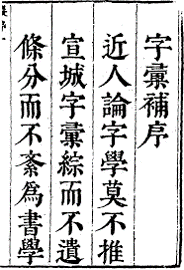 字彙補序
近人論字學莫不推
宣城字彙綜而不遺
條分而不紊為書學